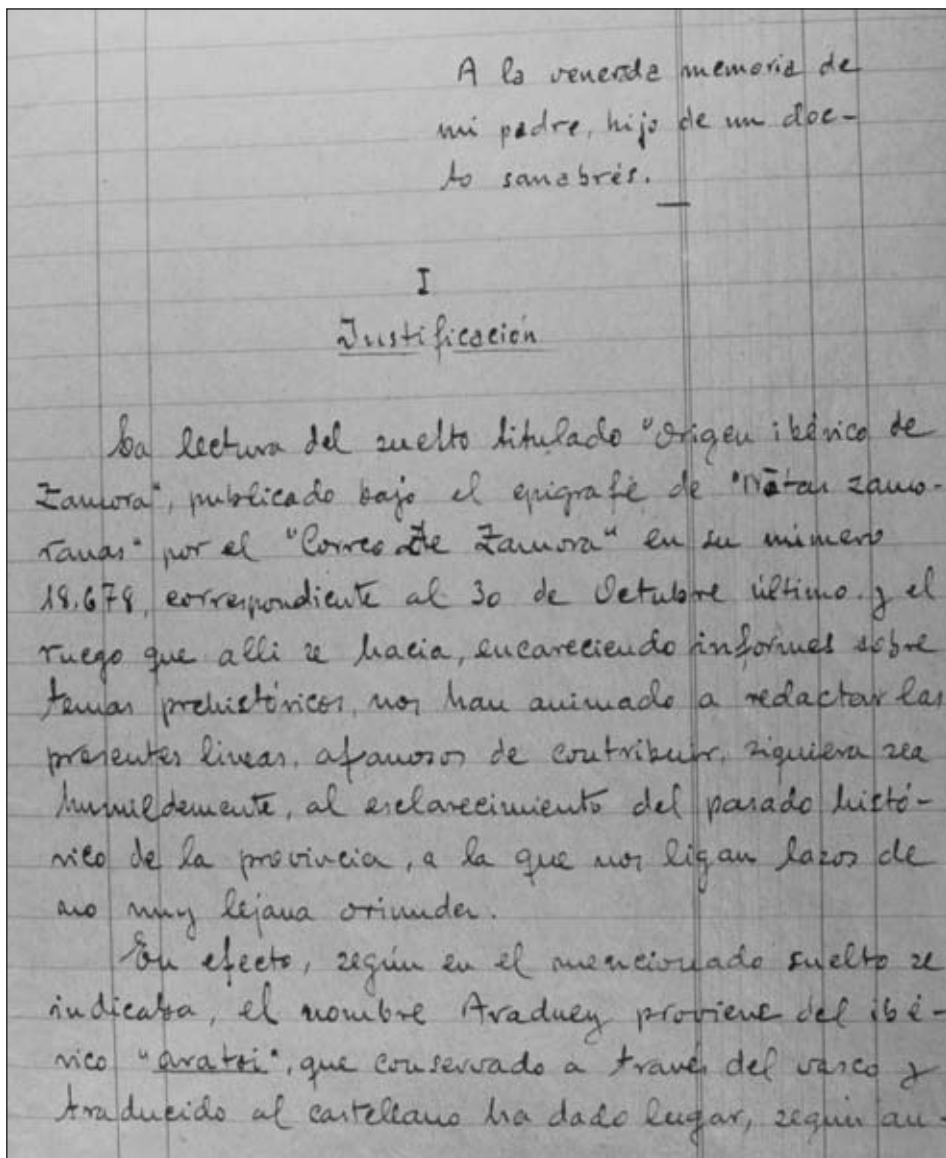 A la venerada memoria de
mi padre, hijo de un doc-
to sanabrés.
I
Justificación
La lectura del suelto titulado "Origen ibérico de
Zamora", publicado bajo el epigrafe de "Notas zamo-
ranas" por el "Correo De Zamora" en su número
18.678, correspondiente al 30 de Octubre último y el
ruego que alli se hacia, encareciendo informes sobre
temas prehistóricos, nos han animado a redactar las
presentes lineas, afanosos de contribuir, siquiera sea
humildemente, al esclarecimiento del pasado histó-
rico de la provincia, a la que nos ligan lazos de
no muy lejana oriundez.
En efecto, según en el mencionado suelto se
indicaba, el nombre Araduey proviene del ibé-
rico "aratoi", que conservado a través del vasco y
traducido al castellano ha dado lugar, según au-